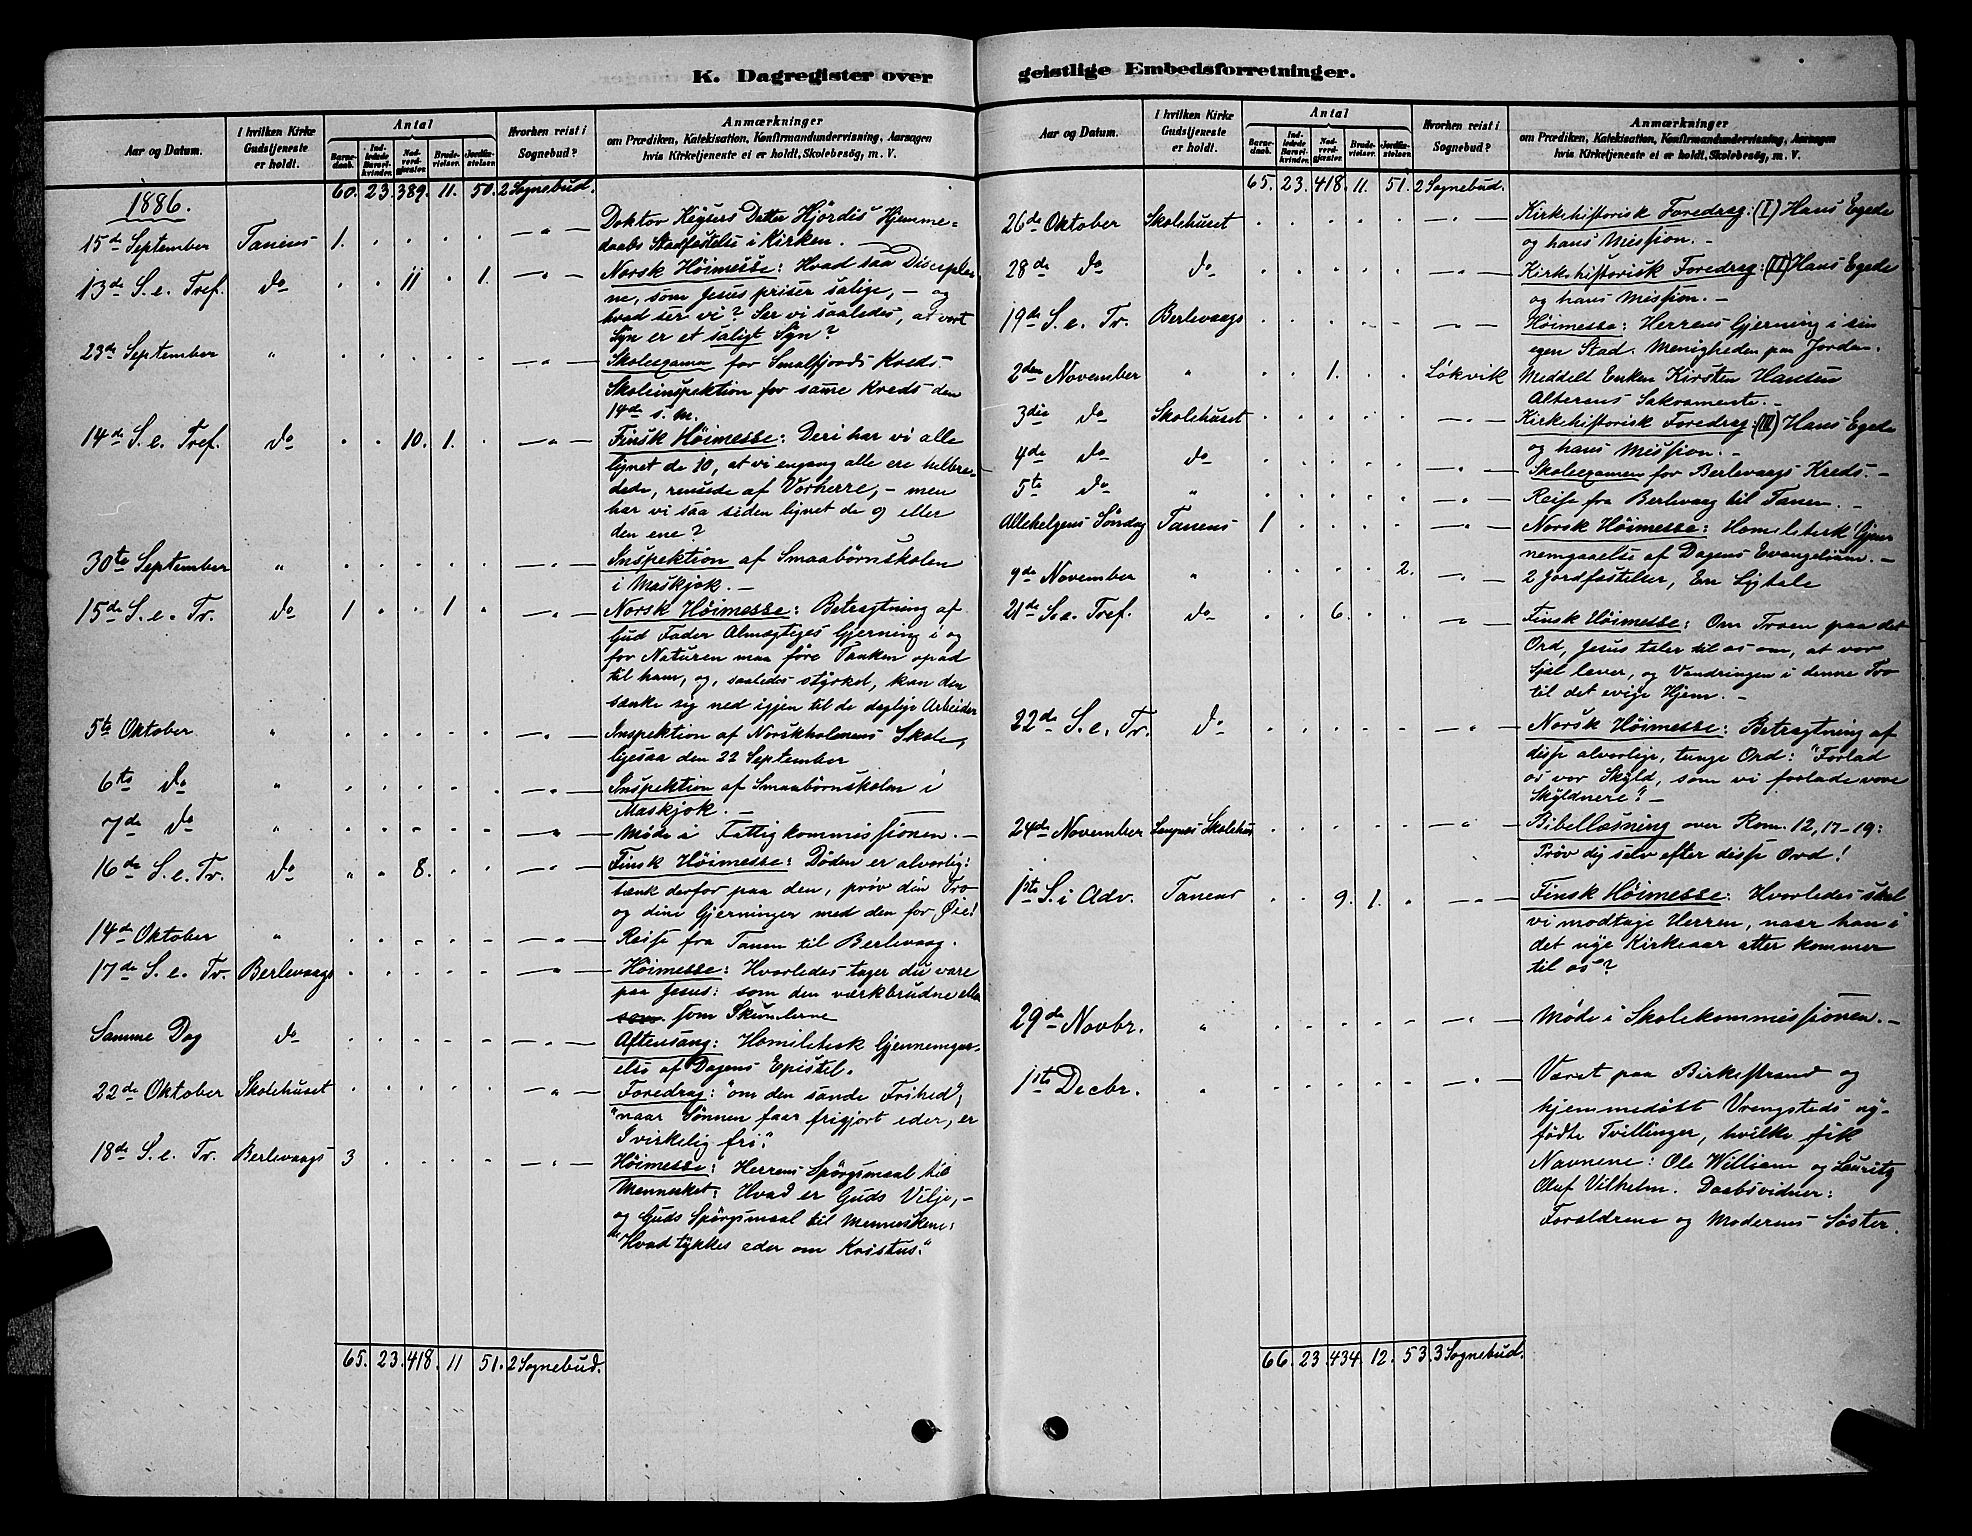 K. Dagregister over
Aar og Datum.
I hvilken Kirke Gudstjeneste er holdt.
Antal
Barnedaab.
Indledede Barselkvinder.
Nadverdgjester.
Brudevielser.
Jordfæstelser.
Hvorhen reist i Sognebud?
Anmærkninger
om Prædiken, Katekisation, Konfirmandundervisning, Aarsagen
hvis Kirketjeneste ei er holdt, Skolebesög, m. V.
1886. 60. 23. 389. 11. 50. 2 Sognebud.
15de September Tanens 1. Doktor Keysers Datter Hjördis' Hjemme-
daabs Stadfæstelse i Kirken. —
13de S. e. Tref. do 11 1. Norsk Höimesse: Hvad saa Disciple-
ne, som Jesus priser salige, – og
hvad ser vi? Ser vi saaledes, at vort
Syn er et saligt Syn?
23de September " Skoleexamen for Smalfjords Kreds.
Skoleinspektion for same Kreds den
14de s. M.
14de S. e. Tref. do 10. 1. Finsk Höimesse: Deri har vi alle
lignet de 10, at vi engang alle ere helbre-
dede, rensede af Vorherre, – men
har vi saa siden lignet de 9 eller
den ene?
30te September " Inspektion af Smaabörnskolen
i Maskjok. —
15de S. e. Tr. do 1 1. Norsk Höimesse: Betragtning af
Gud Fader Almægtiges Gjerning i og
for Naturen maa före Tanken opad
til ham, og, saaledes styrket, kan den
sænke sig ned igjen til de daglige Arbeider
5te Oktober " Inspektion af Norskholmens Skole,
ligesaa den 22 September
6te do " Inspektion af Smaabörnskolen i
Maskjok. —
7de do " Möde i Fattigkommissionen. —
16de S. e. Tr. do 8. Finsk Höimesse: Döden er alvorlig:
tænk derfor paa den, pröv din Tro
og dine Gjerninger med den for Öie!
14de Oktober " Reise fra Tanen til Berlevaag.
17de S. e. Tr. Berlevaags Höimesse: Hvorledes tager du vare
paa Jesus: som den værkbrudne eller
som Skriverne
Samme Dag do Aftensang: Homiletisk Gjennemgaa-
else af Dagens Epistel.
22de Oktober Skolehuset Foredrag: "om den sande Frihed,"
"naar Sönnen faar frigjort eder, er
I virkelig fri."
18de S. e. Tr. Berlevaags 3 Höimesse: Herrens Spörgsmaal til
Mennesket: Hvad er Guds Vilje, –
og Guds Spörgsmaal til Menneskene:
"Hvad tykkes eder om Kristus."
65. 23. 418. 11 51. 2 Sognebud.
geistlige Embedsforretninger.
Aar og Datum.
I hvilken Kirke Gudstjeneste er holdt.
Antal
Barnedaab.
Indledede Barselkvinder.
Nadverdgjester.
Brudevielser.
Jordfæstelser.
Hvorhen reist i Sognebud?
Anmærkninger
om Prædiken, Katekisation, Konfirmandundervisning, Aarsagen
hvis Kirketjeneste ei er holdt, Skolebesög, m. V.
65. 23. 418. 11. 51. 2 Sognebud.
26de Oktober Skolehuset Kirkehistorisk Foredrag: (I) Hans Egede
og hans Mission. —
28de do do Kirkehistorisk Foredrag: (II) Hans Egede
og hans Mission. —
19de S. e. Tr. Berlevaags Höimesse: Herrens Gjerning i sin
egen Stad. Menigheden paa Jorden.
2den November " 1. Løkvik Meddelt Enken Kirsten Hansen
Alterens Sakramente. —
3die do Skolehuset Kirkehistorisk Foredrag: (III) Hans Egede
og hans Mission. —
4de do do Skoleexamen for Berlevaags Kreds. —
5te do " Reise fra Berlevaag til Tanen. —
Allehelgens Söndag Tanens 1 Norsk Höimesse: Homiletisk Gjen-
nemgaaelse af Dagens Evangelium. —
9de November " 2. 2 Jordfæstelser, En Ligtale
21de S. e. Tref. do 6. Finsk Höimesse: Om Troen paa det
Ord, Jesus taler til os om, at vor
Sjæl lever, og Vandringen i denne Tro
til det evige Hjem. —
22de S. e. Tr. do Norsk Höimesse: Betragtning af
disse alvorlige, tunge Ord: "Forlad
os vor Skyld, som vi forlade vore
Skyldnere". —
24de November Skolehus Bibellæsning over Rom. 12, 17–19:
Pröv dig selv efter disse Ord!
1ste S. i Adv. Tanens 9. 1. Finsk Höimesse: Hvorledes skal
vi modtage Herren, naar han i
det nye Kirkeaar atter kommer
til os?
29de Novbr. " Möde i Skolekommissionen. —
1ste Decbr. " Været paa Birkestrand og
hjemmedöbt Vrengsteds ny-
födte Tvillinger, hvilke fik
Navnene: Ole William og Lauritz
Oluf Vilhelm. Daabsvidner:
Forældrene og Moderens Söster.
66. 23 434. 12. 53. 3 Sognebud.